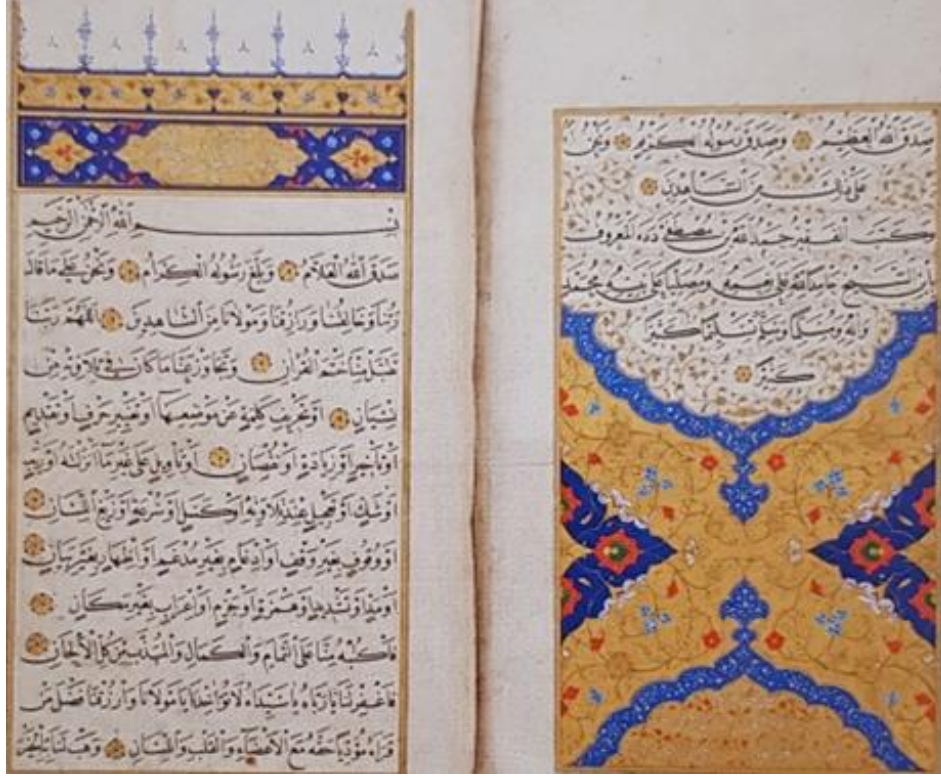 صدق الله العظيم وصدق رسوله الكريم ونحن
على ذلك من الشاهدين
وكتب الفقير حمد الله بن مصطفى دده المعروف
بابن الشيخ حامدا لله على نعمه ومصليا على نبيه محمد
وآله ومسلما وسلم تسليما كثيرا
كثيرا
بسم الله الرحمن الرحيم
صدق الله العلام وبلغ رسوله الكرام ونحن على ما قال
ربنا وخالقنا ورازقنا ومولانا من الشاهدين اللهم ربنا
تقبل منا ختم القرآن وتجاوز عنا ما كان في تلاوته من
نسيان او تحريف كلمة عن موضعها او تغيير حرف او تقديم
او تأخير او زيادة او نقصان او تأويل على غير ما انزلته او ريب
او شك او تعجيل عند تلاوته او كسل او سرعة او زيغ اللسان
او وقوف بغير وقف او ادغام بغير مدغم او اظهار بغير بيان
او مد او تشديد او همزة او جزم او اعراب بغير مكان
فاكتبه منا على التمام والكمال والمهذب من كل الالحان
فاغفر لنا يا رباه يا سيداه لا تؤاخذنا يا مولانا وارزقنا فضل من
قراه مؤديا حقه مع الاعضاء والقلب واللسان وهب لنا به الخير